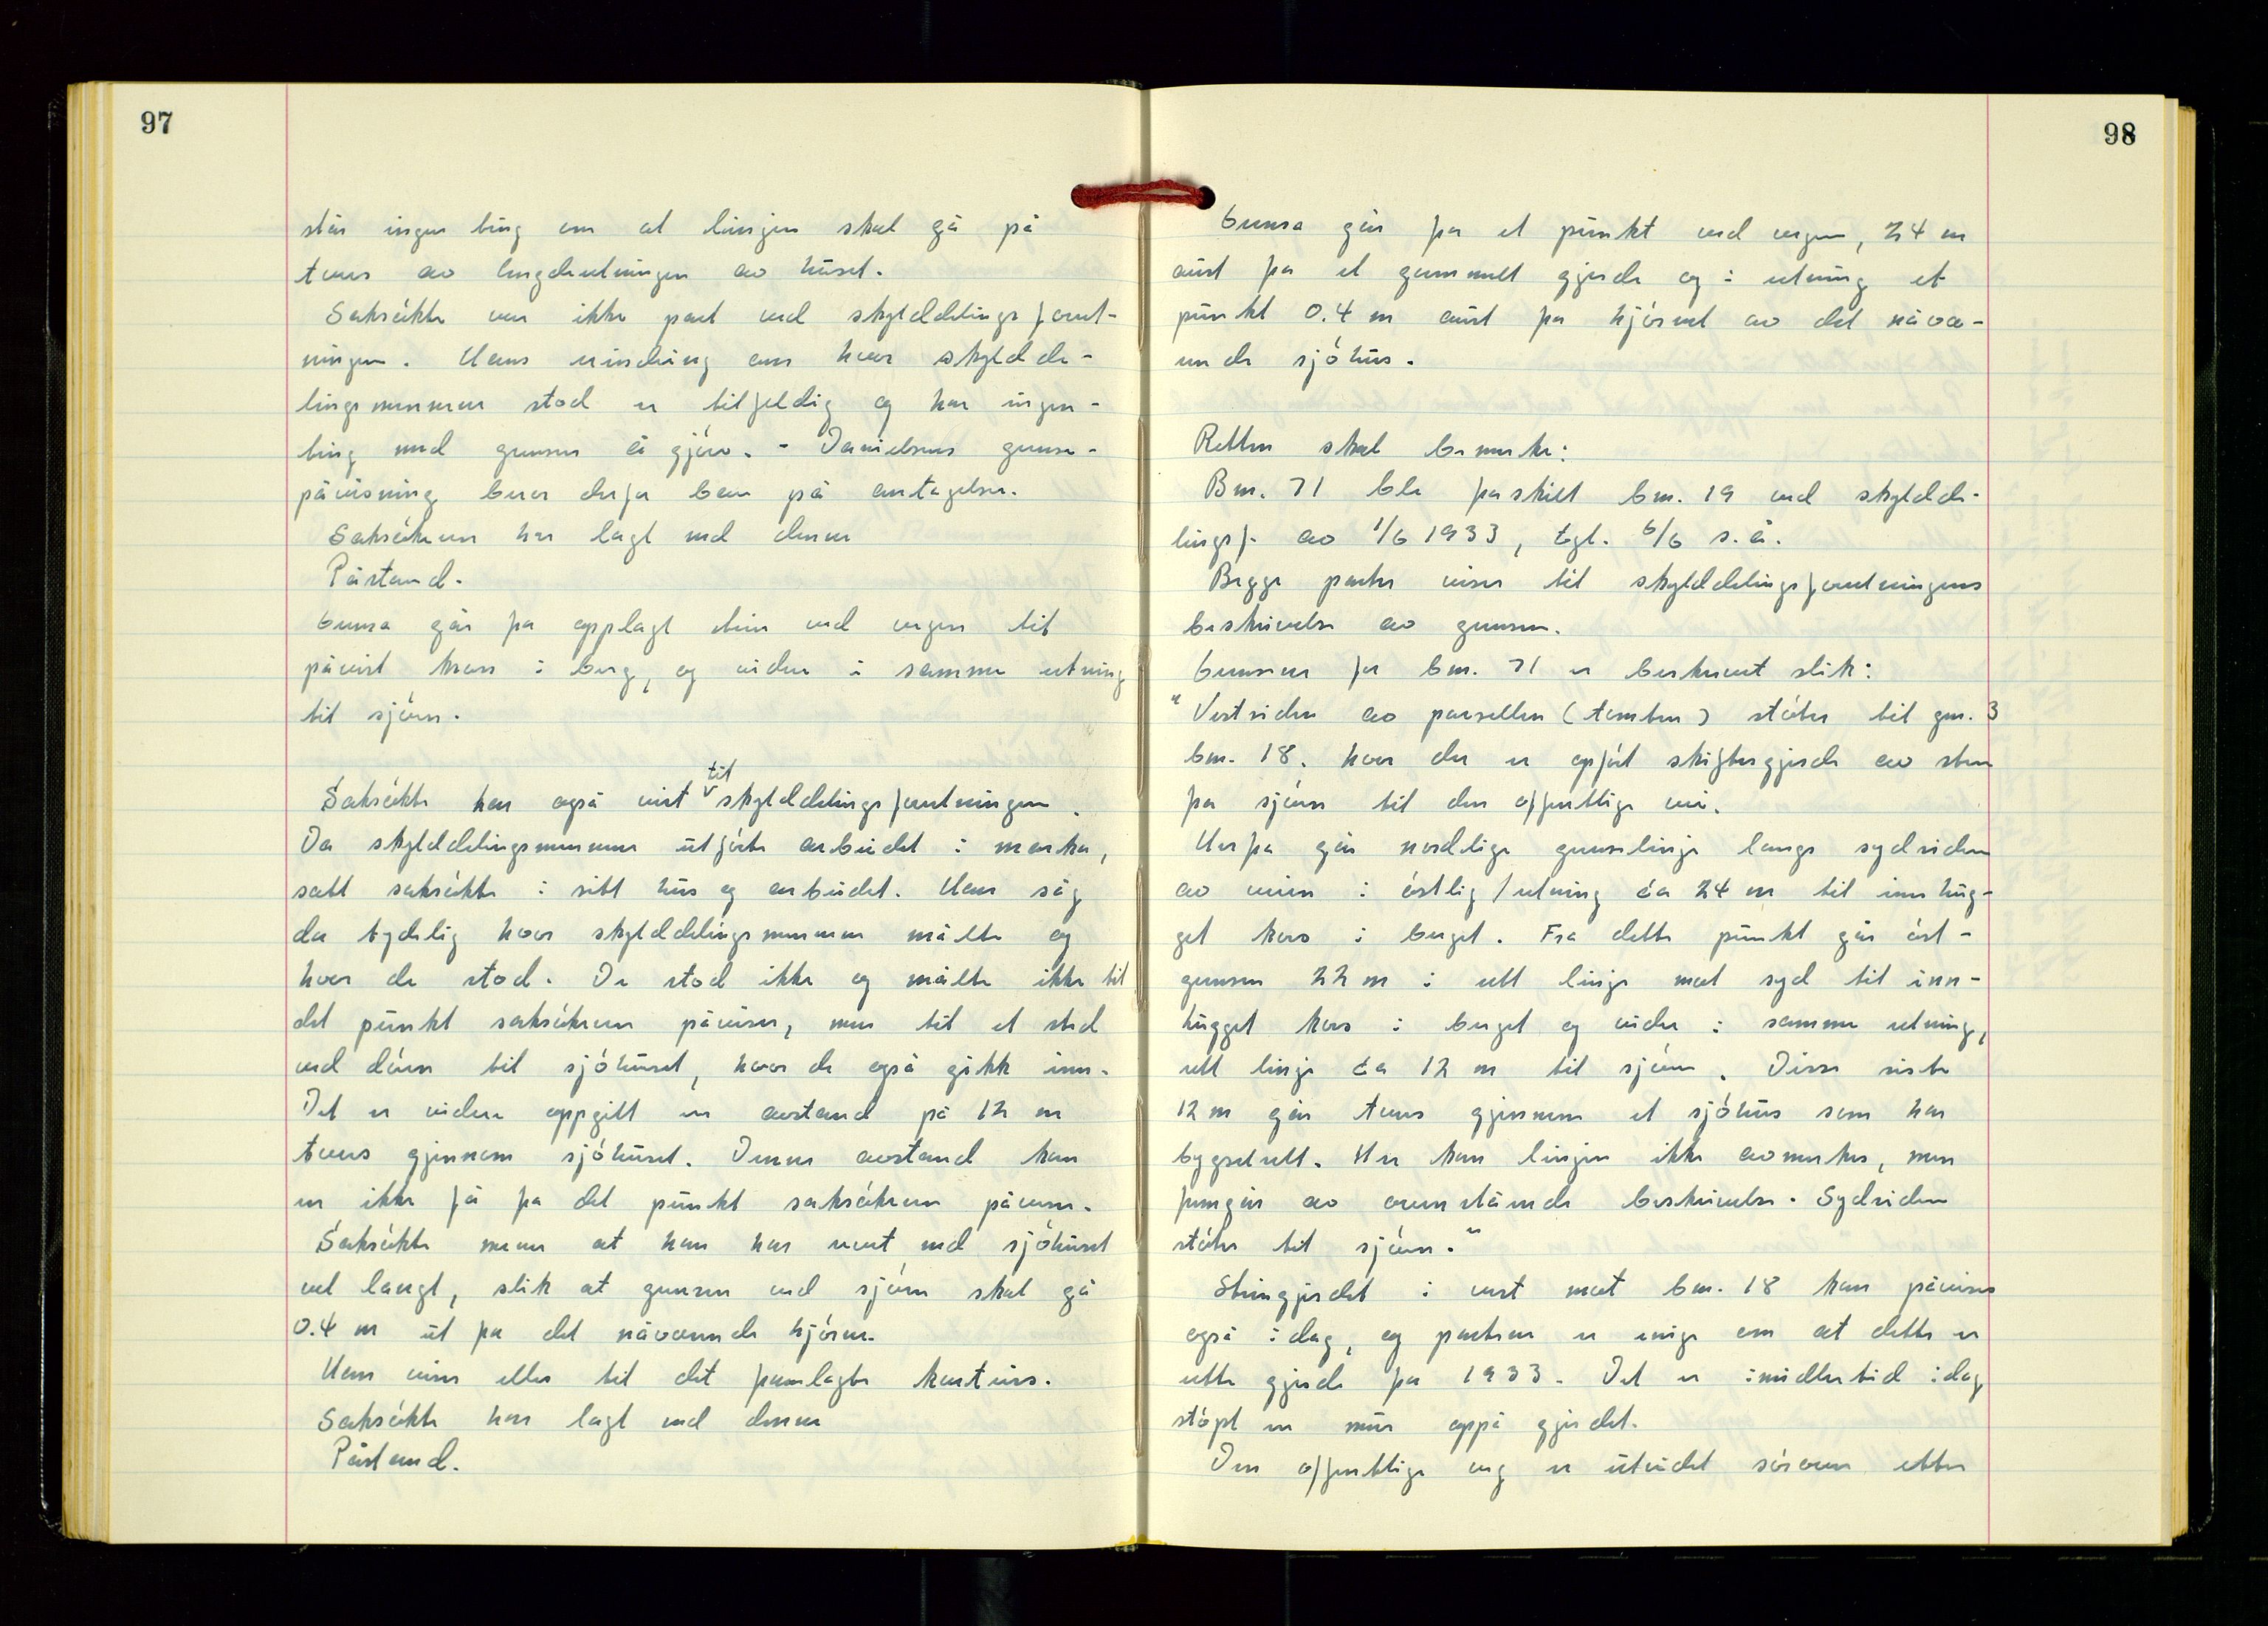 97
står ingen ting om at linjen skal gå på
tvers av lengderetningen av huset.
Saksøkte var ikke part ved skylddelingsforret-
ningen. Hans erindring om hvor skyldde-
lingsmennene stod er tilfeldig og har ingen-
ting med grensen å gjøre. - Danielsens grense-
påvisning beror derfor bare på antagelser.
Saksøkeren har lagt ned denne
Påstand.
Grensa går fra opplagt stein ved vegen til
påvist kors i berg, og videre i samme retning
til sjøen.
Saksøkte har også vist til skylddelingsforretningen.
Da skylddelingsmennene utførte arbeidet i marka,
satt saksøkte i sitt hus og arbeidet. Han såg
da tydelig hvor skylddelingsmennene målte og
hvor de stod. De stod ikke og målte ikke til
det punkt saksøkeren påviser, men til et sted
ved døren til sjøhuset, hvor de også gikk inn.
Det er videre oppgitt en avstand på 12 m
tvers gjennom sjøhuset. Denne avstand kan
en ikke få fra det punkt saksøkeren påviser.
Saksøkte mener at han har vært ved sjøhuset
vel langt, slik at grensen ved sjøen skal gå
0.4 m ut fra det nåværende hjørne.
Han viser ellers til det framlagte kartriss.
Saksøkte har lagt ned denne
Påstand.
98
Grensa går fra et punkt ved vegen, 24 m
aust fra et gammelt gjerde og i retning et
punkt 0.4 m aust fra hjørnet av det nåvæ-
rende sjøhus.
Retten skal bemerke:
Bnr. 71 ble fraskilt bnr. 19 ved skyldde-
lingsf. av 1/6 1933, tgl. 6/6 s.å.
Begge parter viser til skylddelingsforretningens
beskrivelse av grensen.
Grensene for bnr. 71 er beskrevet slik:
"Vestsiden av parsellen (tomten) støter til gnr. 3
bnr. 18. hvor der er opført skiftesgjerde av sten
fra sjøen til den offentlige vei.
Herfra går nordlige grenselinje langs sydsiden
av veien i østlig retning ca 24 m til innhug-
get kors i berget. Fra dette punkt går øst-
grensen 22 m i rett linje mot syd til inn-
hugget kors i berget og videre i samme retning,
rett linje ca 12 m til sjøen. Disse siste
12 m går tvers gjennem et sjøhus som har
byggselrett. Her kan linjen ikke avmerkes, men
fremgår av ovenstående beskrivelse. Sydsiden
støter til sjøen."
Steingjerdet i vest mot bnr. 18 kan påvises
også idag, og partene er enige om at dette er
rette gjerde fra 1933. Det er imidlertid idag
støpt en mur oppå gjerdet.
Den offentlige veg er utvidet sørover etter